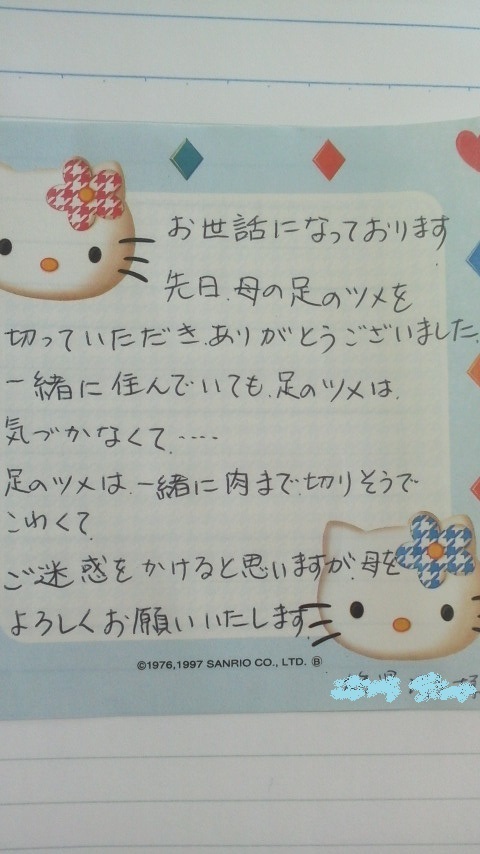 お世話になっております
先日、母の足のツメを
切っていただき、ありがとうございました。
一緒に住んでいても、足のツメは、
気づかなくて、····
足のツメは、一緒に肉まで、切りそうで
こわくて、
ご迷惑をかけると思いますが、母を
よろしくお願いいたします。
©1976,1997 SANRIO CO., LTD. Ⓑ